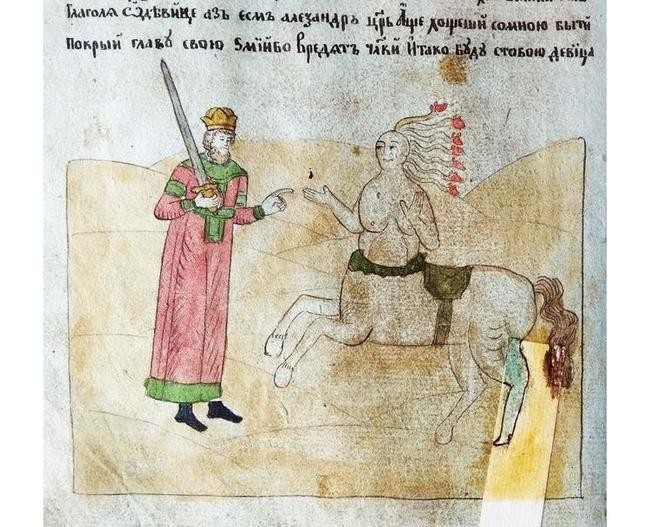 Глаголѧ дѣвице азъ есмь алеѯандръ цр҃ь Аще хощеши сомною быти
Покрый главꙋ свою ѕмїибо вредѧтъ И тако бꙋдꙋ стобою девица